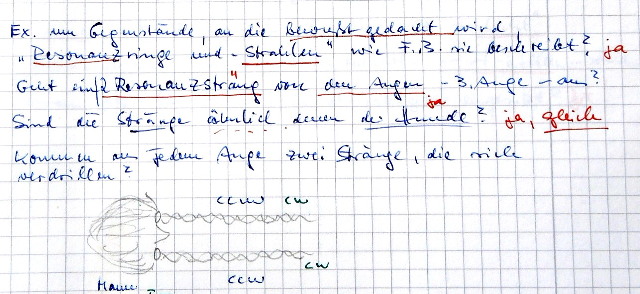 Ex. um Gegenstände, an die bewußt gedacht wird,
"Resonanzringe und -Strahlen" wie F.B. sie beschreibt? ja
Geht ein "Resonanzstrang" von den Augen - 3. Auge - aus?
ja
Sind die Stränge ähnlich denen der Hände? ja, gleich
Kommen aus jedem Auge zwei Stränge, die sich
verdrillen?
ccw cw
cw
ccw